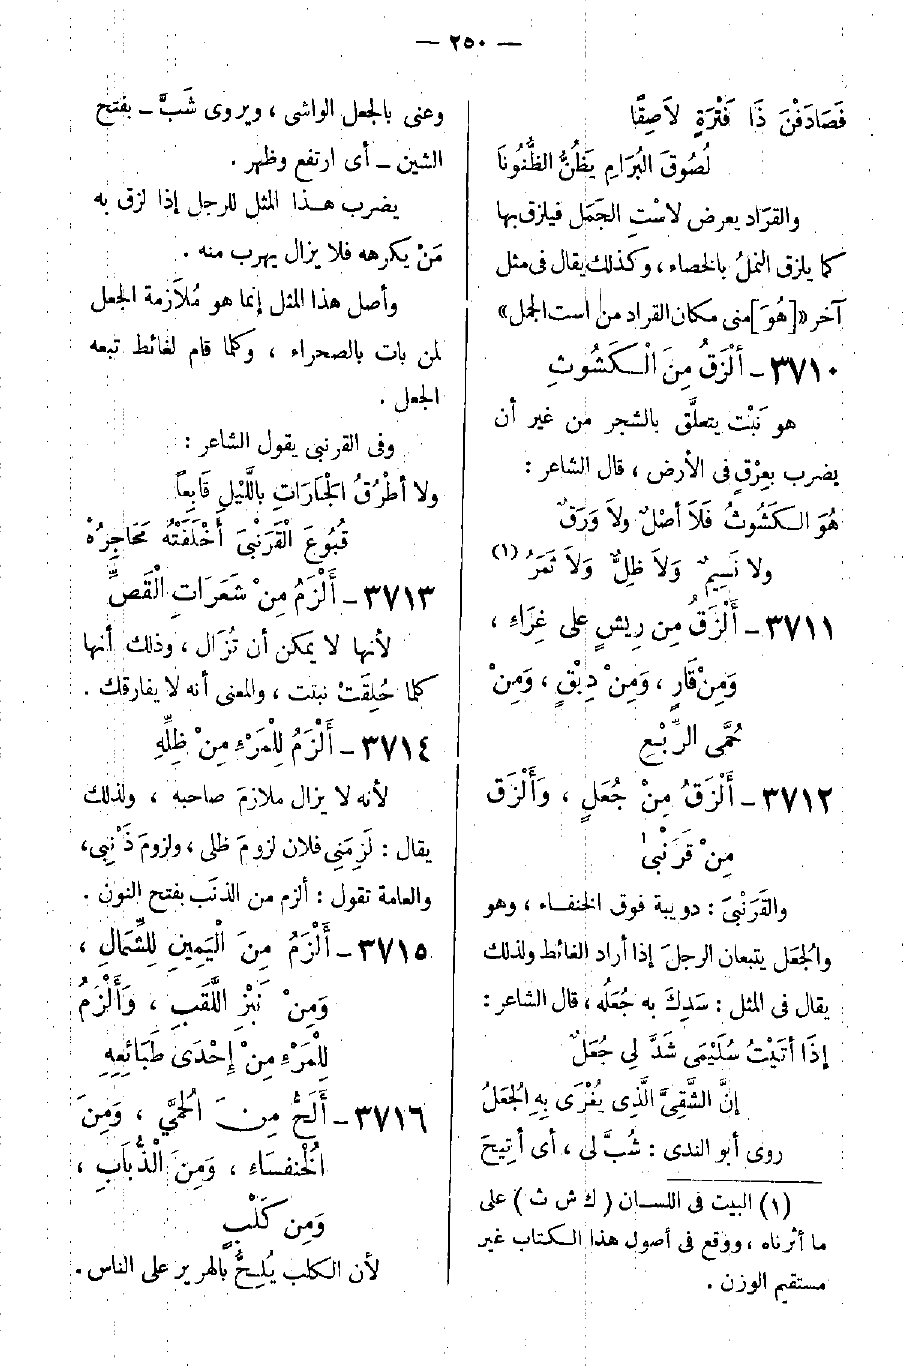 — ٢٥٠ —
فَصَادَفْنَ ذَا فَتْرَةٍ لاَصِقًا
لُصُوقَ البُرَامِ يَظُنُّ الظُّنُونَا
والقرَاد يعرض لاسْتِ الجَمَل فيلزق بها
كما يلزق النملُ بالخصاء ، وكذلك يقال فى مثل
آخر «[هُوَ] منى مكان القراد من است الجمل»
٣٧١٠ - أَلْزَقُ مِنَ الْـكَشُوثِ
هو نَبْت يتعلَّق بالشجر من غير أن
يضرب بعِرْقٍ فى الأرض ، قال الشاعر :
هُوَ الـكَشُوثُ فَلاَ أصْلٌ ولاَ وَرَقٌ
ولا نَسِيمٌ وَلاَ ظِلٌّ وَلاَ ثَمَرُ (١)
٣٧١١ - أَلْزَقُ مِن رِيشٍ على غِرَاءِ ،
وَمِنْ قَارٍ ، وَمِنْ دِبْقٍ ، وَمِنْ
حُمَّى الرِّبْعِ
٣٧١٢ - أَلْزَقُ مِنْ جُعَلٍ ، وَأَلْزَق
مِنْ قَرَنْبىٰ
والقَرَنْبىَ : دويبة فوق الخنفـاء ، وهو
والجُعَل يتبعان الرجلَ إذا أراد الغائط ولذلك
يقال فى المثل : سَدِكَ به جُعَلُه ، قال الشاعر :
إذَا أتَيْتُ سُلَيْمَى شَدَّ لِي جُعَلٌ
إنَّ الشَّقِىَّ الَّذِى يُغْرَى بِهِ الجُعَلُ
روى أبو الندى : شُبَّ لى ، أى أتِيحَ
(١) البيت فى اللسـان ( ك ش ث ) على
ما أثرناه ، ووقع فى أصول هذا الـكتاب غير
مستقيم الوزن .
وعنى بالجعل الواشى ، ويروى شَبَّ ـ بفتح
الشين ـ أى ارتفع وظهر .
يضرب هـذا المثل للرجل إذا لزق به
مَنْ يكرهه فلا يزال يهرب منه .
وأصل هذا المثل إنما هو مُلاَزمة الجعل
لمن بات بالصحراء ، وكلما قام لغائط تبعه
الجعل .
وفى القرنبى يقول الشاعر :
ولا أطْرُقُ الجَارَاتِ باللَّيْلِ قَابِعاً
قُبُوعَ الْقَرَنْبىَ أَخْلَفَتْهُ مَحَاجِرُهْ
٣٧١٣ - أَلْزَمُ مِنْ شَعَرَاتِ الْقَصِّ
لأنها لا يمكن أن تُزَال ، وذلك أنها
كلما حُلِقَتْ نبتت ، والمعنى أنه لا يفارقك .
٣٧١٤ - أَلْزَمُ لِلْمَرْءِ مِنْ ظِلِّهِ
لأنه لا يزال ملازمَ صاحبه ، ولذلك
يقال : لَزِمَنِى فلان لزومَ ظلى ، ولزومَ ذَنْبِى،
والعامة تقول : ألزم من الذنَب بفتح النون .
٣٧١٥ - أَلْزَمُ مِنَ الْيَمِينِ لِلشِّمَالِ ،
وَمِنْ نَبْزِ اللَّقَبِ ، وَأَلْزَمُ
لِلْمَرْءِ مِنْ إِحْدَى طَبَائِعِهِ
٣٧١٦ - أَلَحُّ مِنَ الْحُمَّى ، وَمِنَ
الْخُنفسَاءِ ، وَمِنَ الْذُّبَابِ ،
وَمِن كَلْبٍ
لأن الكلب يُلِحُّ بالهرير على الناس .